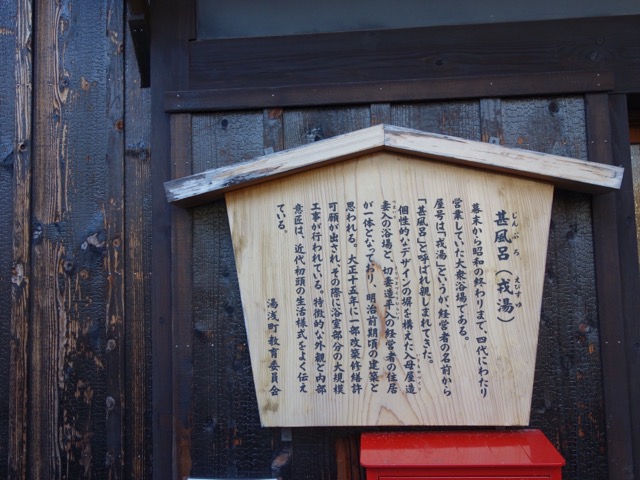 甚風呂（戎湯）
じんぶろ
えびすゆ
幕末から昭和の終わりまで、四代にわたり
営業していた大衆浴場である。
屋号は「戎湯」というが経営者の名前から
「甚風呂」と呼ばれ親しまれてきた。
個性的なデザインの塀を構えた入母屋造
妻入の浴場と、切妻造平入の経営者の住居
が一体となっており、明治前期頃の建築と
思われる。大正十五年に一部改築修繕許
可願が出され、その際に浴室部分の大規模
工事が行われている。特徴的な外観と内部
意匠は、近代初頭の生活様式をよく伝え
ている。
湯浅町教育委員会